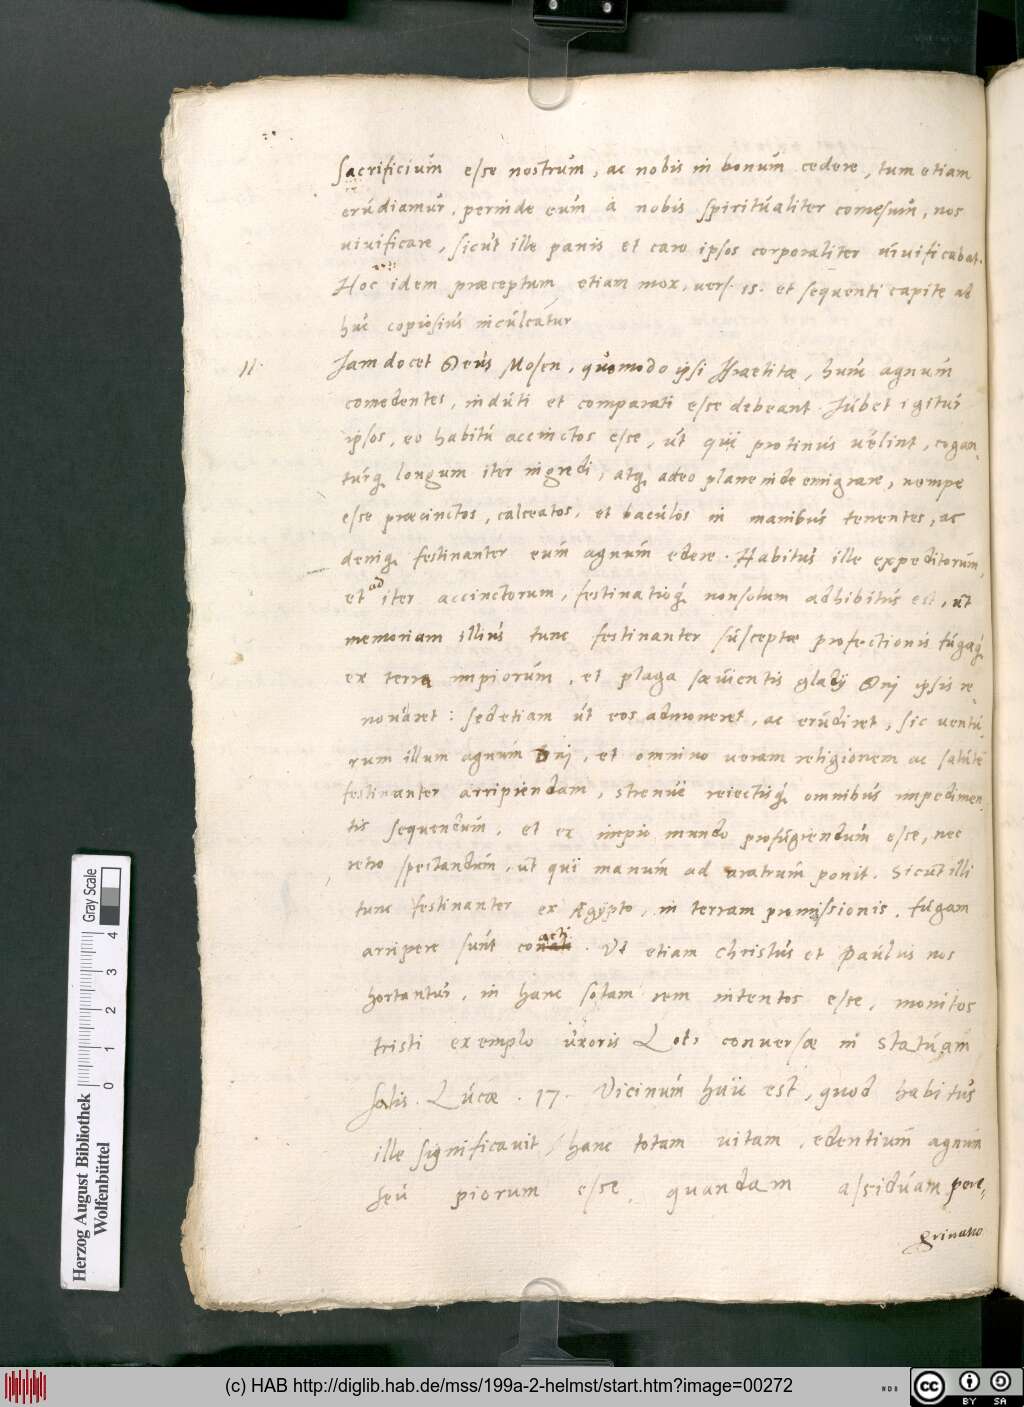 sacrificium esse nostrum, ac nobis in bonum cedere, tum etiam
erudiamur, perinde eum à nobis spiritualiter comesum, nos
uiuificare, sicut ille panis et caro ipsos corporaliter uiuificabat.
Hoc idem præceptum etiam mox, vers. 15. et sequenti capite ad
huc copiosius inculcatur
11. Jam docet Deus Mosen, quomodo ipsi Israelitæ, hunc agnum
comedentes, induti et comparati esse debeant. Jubet igitur
ipsos, eo habitu accinctos esse, ut qui protinus uelint, cogan-
turq; longum iter ingredi, atq; adeo plane inde emigrare, nempe
esse præcinctos, calceatos, et baculos in manibus tenentes, ac
deniq; festinanter eum agnum edere. Habitus ille expeditorum,
et ad iter accinctorum, festinatioq; non solum adhibitus est, ut
memoriam illius tunc festinanter susceptæ profectionis fugaq;
ex terra impiorum, et plaga sæuientis gladij Dnj ipsis re-
nouaret: sed etiam ut eos admoneret, ac erudiret, sic ventu-
rum illum agnum Dnj, et omnino ueram religionem ac salutē
festinanter arripiendam, strenue reiectisq; omnibus impedimen-
tis sequendum, et ex impio mundo profugiendum esse, nec
retro spectandum, ut qui manum ad aratrum ponit. Sicut illi
tunc festinanter ex Ægypto, in terram promissionis, fugam
arripere sunt coacti. Vt etiam Christus et Paulus nos
hortantur, in hanc solam rem intentos esse, monitos
tristi exemplo uxoris Loti conuersæ in statuam
salis. Lucæ. 17. Vicinum huic est, quod habitus
ille significauit, hanc totam uitam, edentium agnum
seu piorum esse quandam assiduam pere-
grinatio
Herzog August Bibliothek
Wolfenbüttel
0 1 2 3 4
Gray Scale
(c) HAB http://diglib.hab.de/mss/199a-2-helmst/start.htm?image=00272
cc BY SA